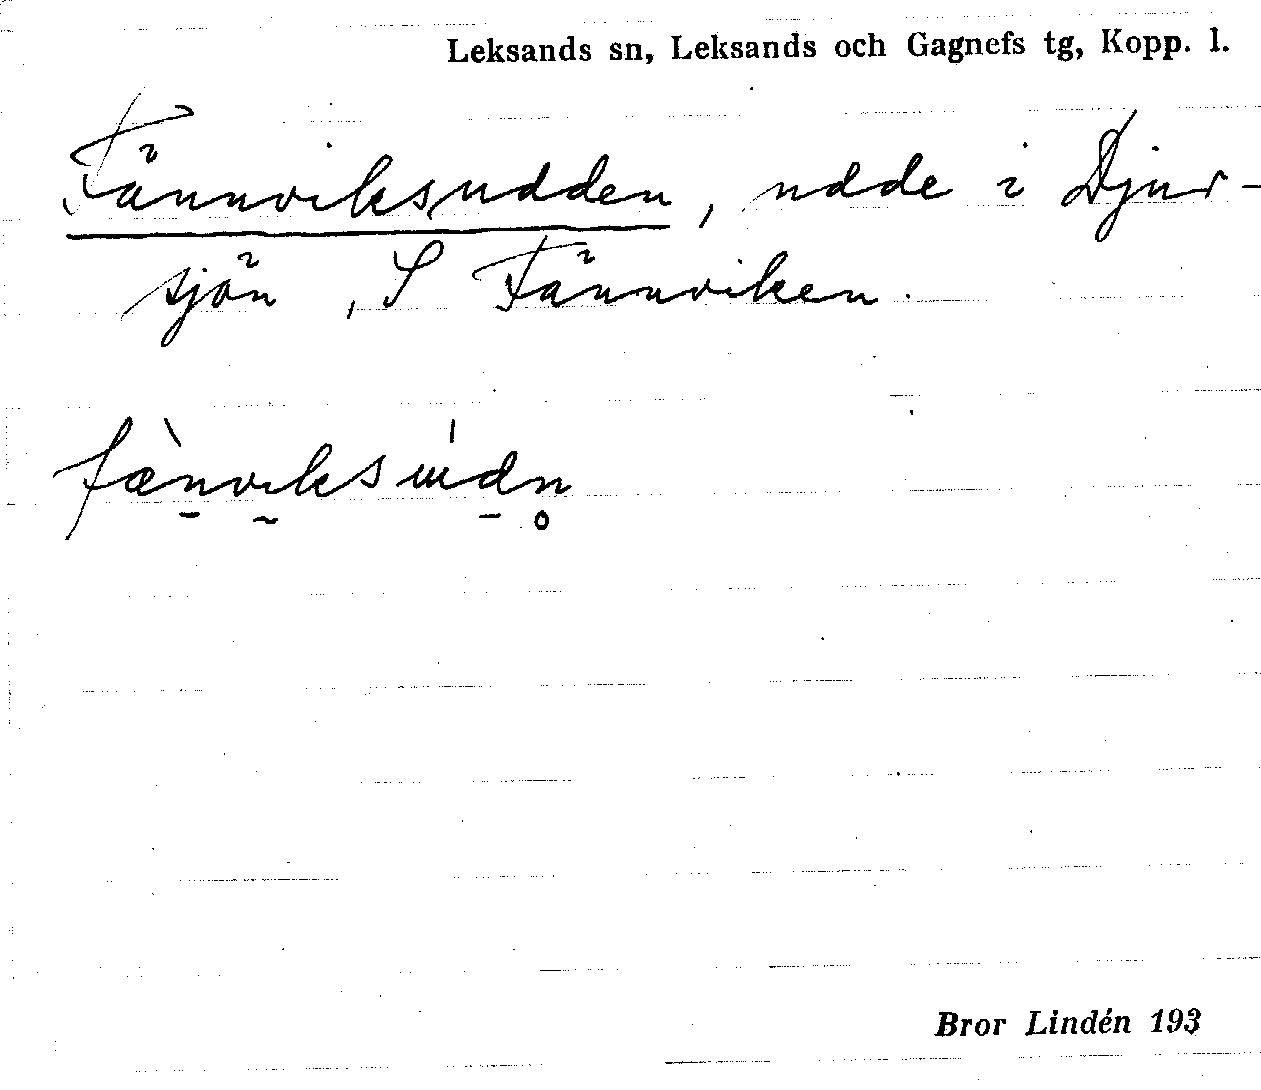 Leksands sn, Leksands och Gagnefs tg, Kopp. l.
Fännviksudden, udde i Djur-
sjön, S Fännviken.
Bror Lindén 193